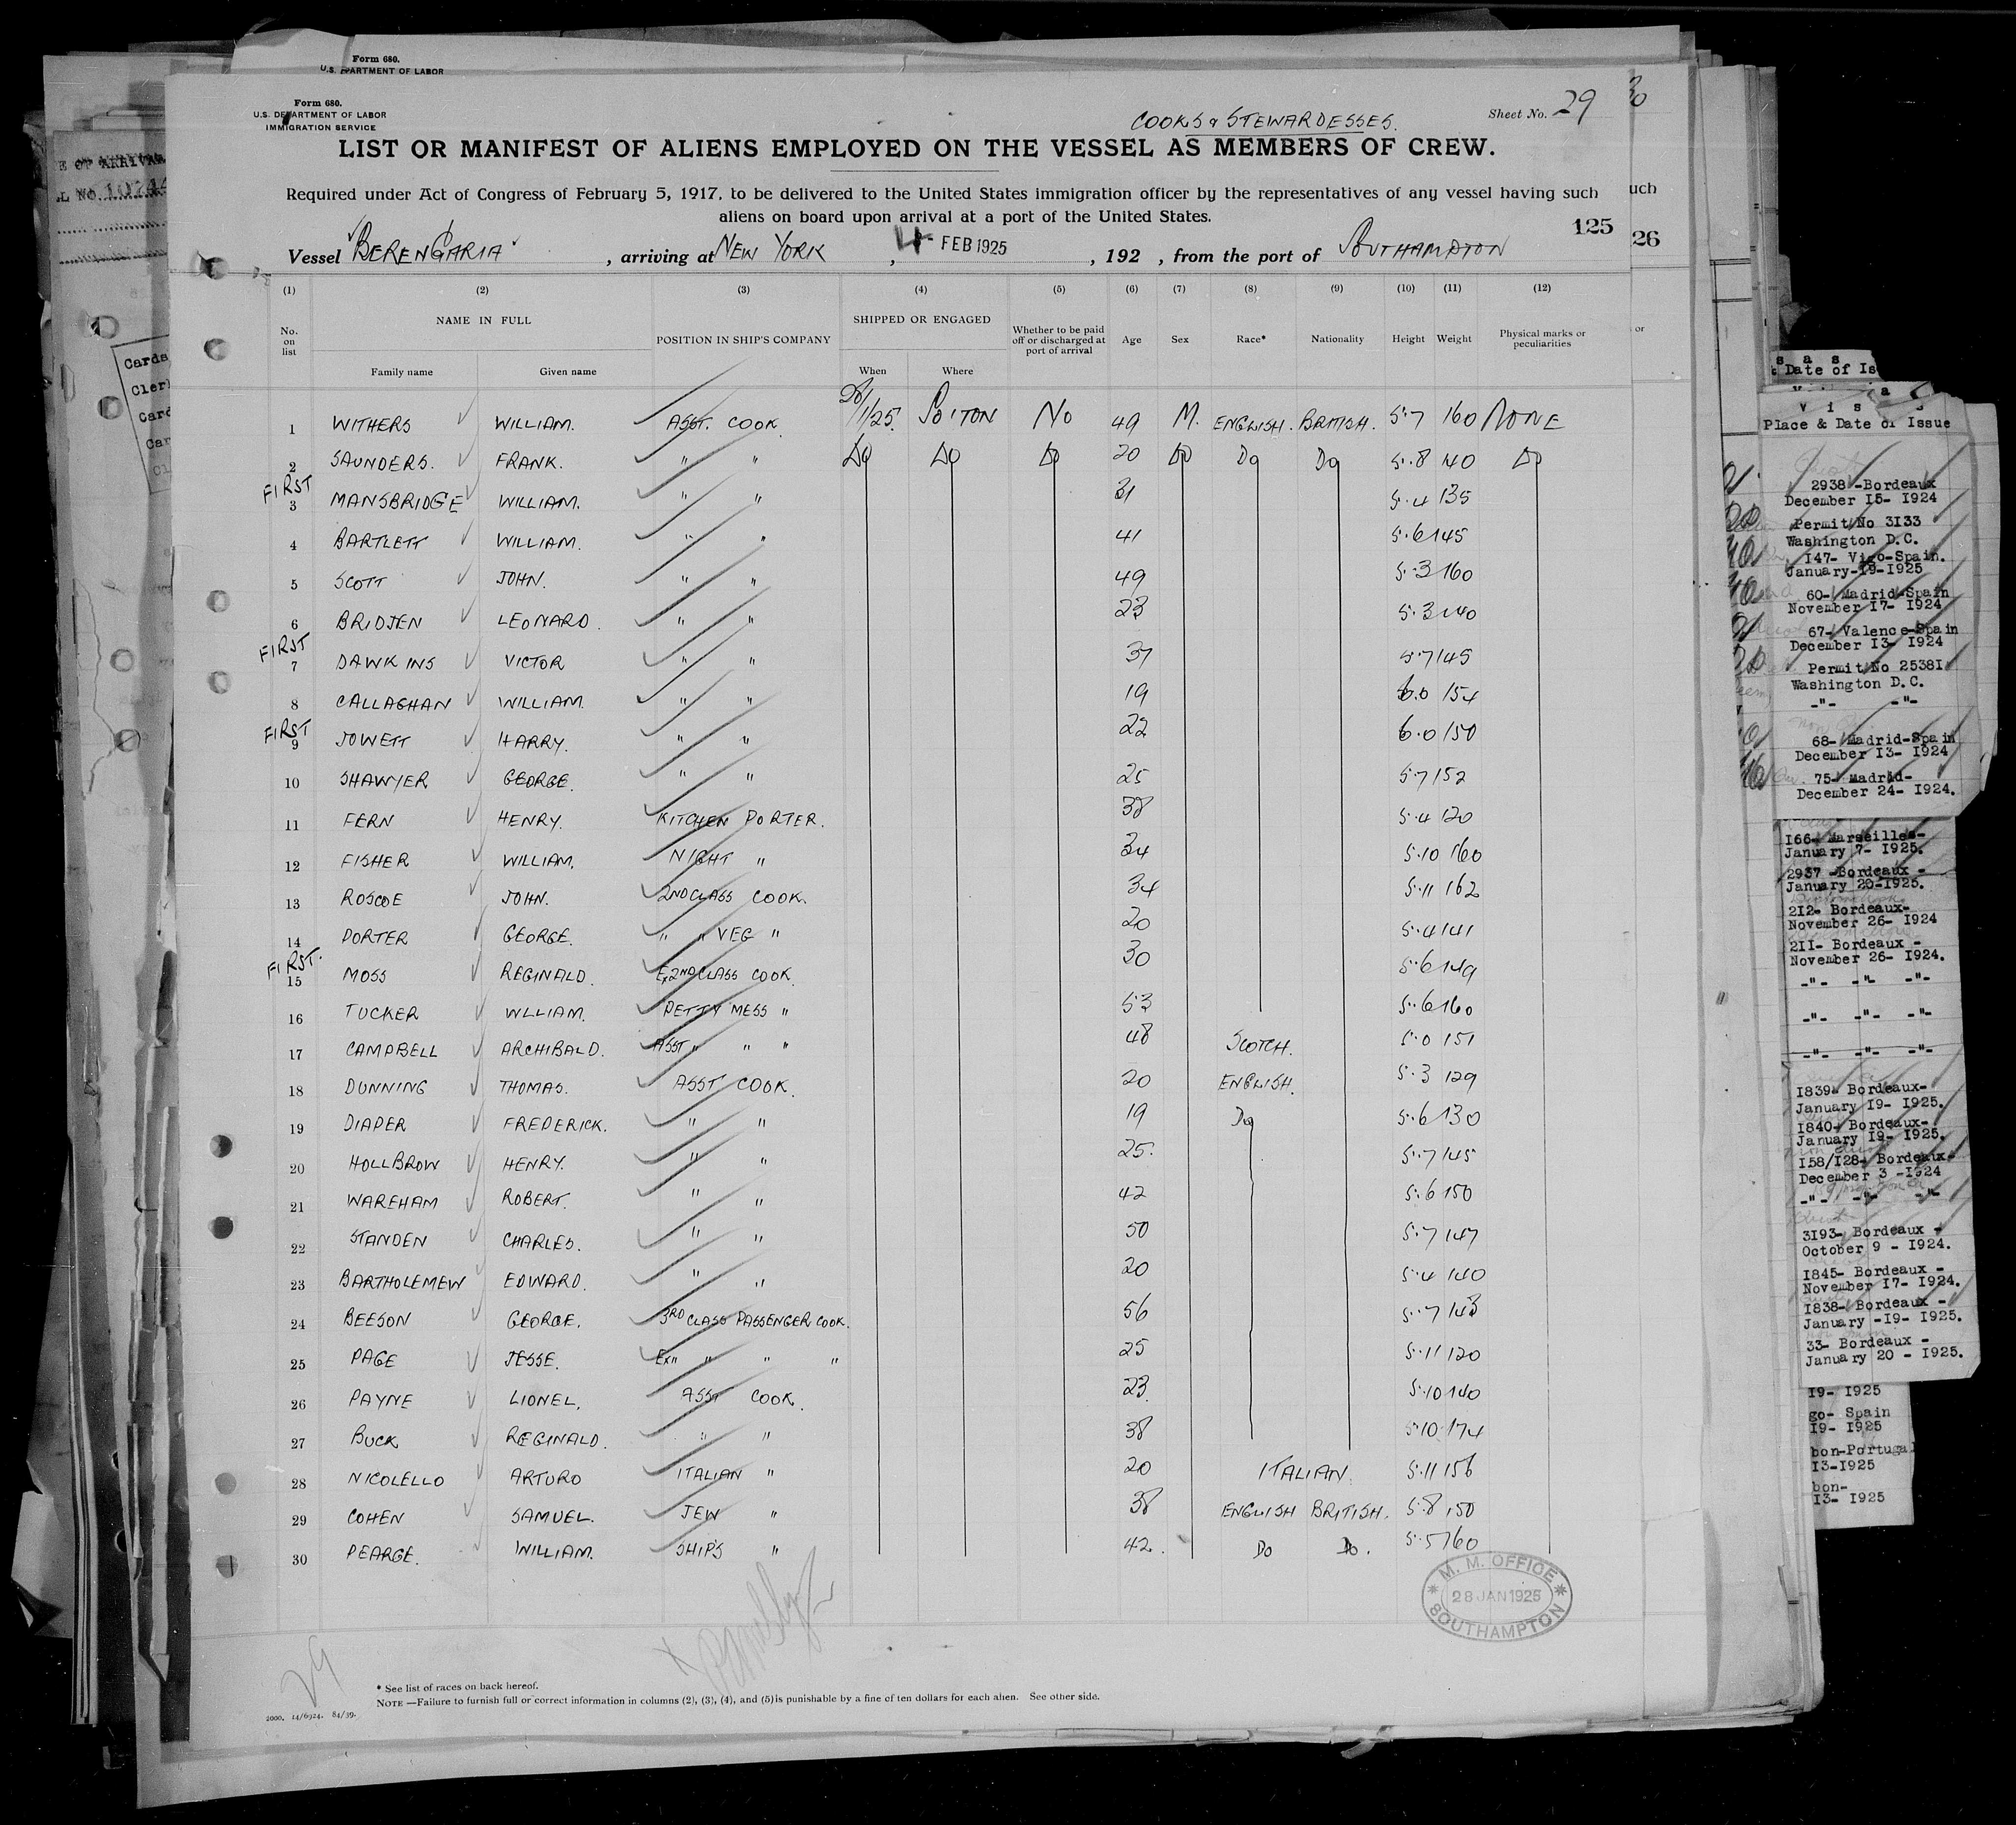 Form 680.
U.S. DEPARTMENT OF LABOR
Form 680.
U.S. DEPARTMENT OF LABOR
IMMIGRATION SERVICE
COOKS & STEWARDESSES.
Sheet No. 29
LIST OR MANIFEST OF ALIENS EMPLOYED ON THE VESSEL AS MEMBERS OF CREW.
Required under Act of Congress of February 5, 1917, to be delivered to the United States immigration officer by the representatives of any vessel having such
aliens on board upon arrival at a port of the United States.
125
Vessel BERENGARIA, arriving at NEW YORK, 4 - FEB 1925, 192 , from the port of SOUTHAMPTON
(1) (2) (3) (4) (5) (6) (7) (8) (9) (10) (11) (12)
No. on list NAME IN FULL POSITION IN SHIP'S COMPANY SHIPPED OR ENGAGED Whether to be paid off or discharged at port of arrival Age Sex Race* Nationality Height Weight Physical marks or peculiarities
Family name Given name When Where
1 WITHERS WILLIAM. ASST. COOK 28/1/25. SO'TON NO 49 M. ENGLISH. BRITISH. 5.7 160 NONE
2 SAUNDERS. FRANK. " " DO DO DO 20 DO DO DO 5.8 140 DO
FIRST 3 MANSBRIDGE WILLIAM. " " 31 5.4 135
4 BARTLETT WILLIAM. " " 41 5.6 145
5 SCOTT JOHN. " " 49 5.3 160
6 BRIDJEN LEONARD. " " 23 5.3 140
FIRST 7 DAWKINS VICTOR " " 37 5.7 145
8 CALLAGHAN WILLIAM. " " 19 6.0 154
FIRST 9 JOWETT HARRY. " " 22 6.0 150
10 SHAWYER GEORGE. " " 25 5.7 152
11 FERN HENRY. KITCHEN PORTER. 38 5.4 120
12 FISHER WILLIAM. NIGHT " 34 5.10 160
13 ROSCOE JOHN. 2ND CLASS COOK. 34 5.11 162
14 PORTER GEORGE. " " VEG " 20 5.4 141
FIRST. 15 MOSS REGINALD. Ex 2ND CLASS COOK. 30 5.6 149
16 TUCKER WLLIAM. PETTY MESS " 53 5.6 160
17 CAMPBELL ARCHIBALD. ASST " " " 48 SCOTCH. 5.0 151
18 DUNNING THOMAS. ASST COOK. 20 ENGLISH. 5.3 129
19 DIAPER FREDERICK. " " 19 DO 5.6 130
20 HOLLBROW HENRY. " " 25. 5.7 145
21 WAREHAM ROBERT. " " 42 5.6 150
22 STANDEN CHARLES. " " 50 5.7 147
23 BARTHOLEMEW EDWARD. " " 20 5.4 140
24 BEESON GEORGE. 3RD CLASS PASSENGER COOK. 56 5.7 143
25 PAGE JESSE. Ex " " " " 25 5.11 120
26 PAYNE LIONEL. ASST COOK. 23. 5.10 140
27 BUCK REGINALD. " " 38 5.10 174
28 NICOLELLO ARTURO ITALIAN " 20 ITALIAN. 5.11 156
29 COHEN SAMUEL. JEW " 38 ENGLISH BRITISH. 5.8 150
30 PEARGE. WILLIAM. SHIPS " 42. DO DO. 5.5 160
M. M. OFFICE
28 JAN 1925
SOUTHAMPTON
29
* See list of races on back hereof.
NOTE —Failure to furnish full or correct information in columns (2), (3), (4), and (5) is punishable by a fine of ten dollars for each alien. See other side.
2000. 14/6924. 84/39.
uch
26
or
Visas
Place & Date of Issue
2938 -Bordeaux
December 15- 1924
Permit No 3133
Washington D.C.
147- Vigo-Spain.
January-19-1925
60- Madrid-Spain
November 17- 1924
67- Valence-Spain
December 13- 1924
Permit No 25381
Washington D.C.
-"- -"-
68- Madrid-Spain
December 13- 1924
75- Madrid-
December 24- 1924.
166- Marseilles-
January 7- 1925.
2937 -Bordeaux -
January 20-1925.
212- Bordeaux-
November 26- 1924
211- Bordeaux -
November 26- 1924.
-"- -"- -"-
-"- -"- -"-
-"- -"- -"-
1839- Bordeaux-
January 19- 1925.
1840- Bordeaux-
January 19- 1925.
158/128- Bordeaux-
December 3 -1924
-"- -"- -"-
3193- Bordeaux -
October 9 - 1924.
1845- Bordeaux -
November 17- 1924.
1838- Bordeaux -
January -19- 1925.
33- Bordeaux -
January 20 - 1925.
19- 1925
go- Spain
19- 1925
bon-Portugal
13-1925
bon-
13- 1925